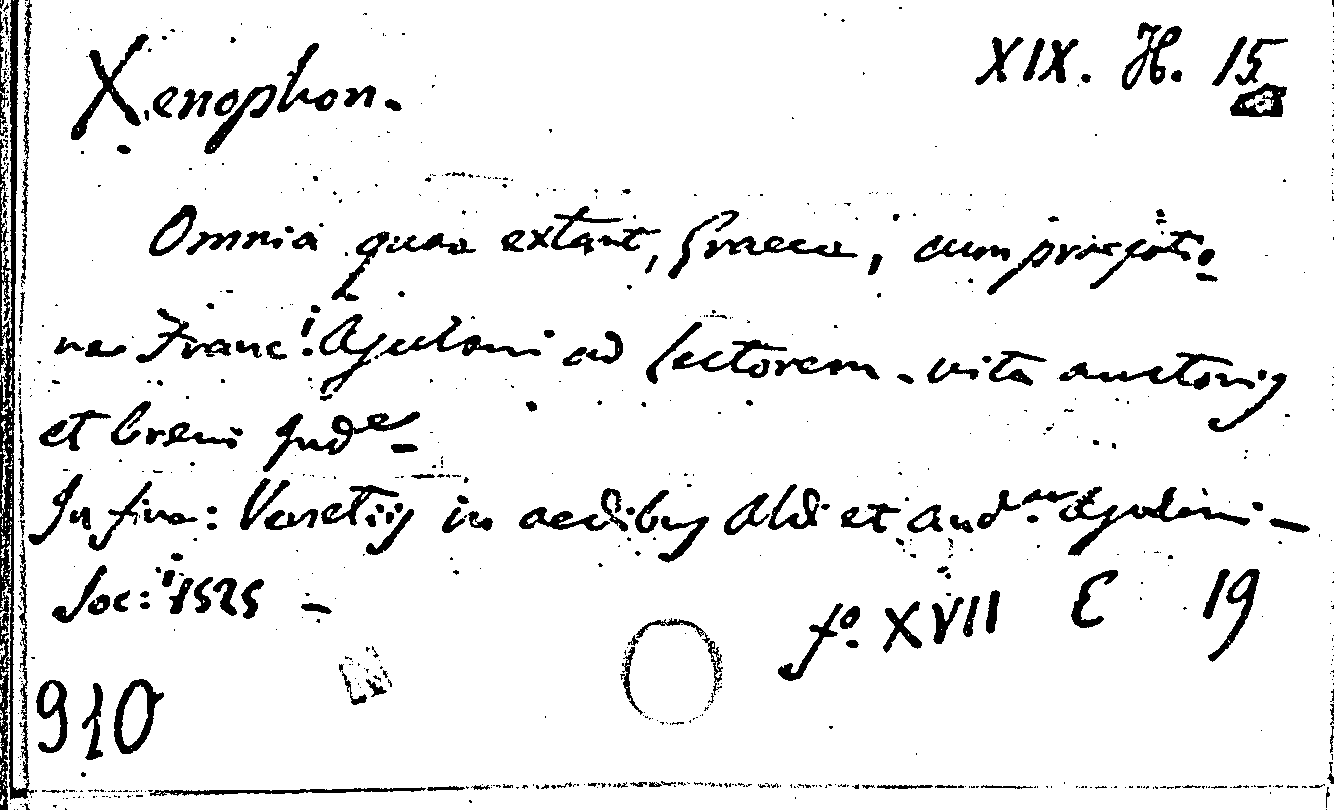 Xenophon.
XIX. H. 15
Omnia quae extant, Graece, cum praefatio-
ne Franc.i Asulani ad lectorem. vita auctoris
et brevi Ind.e -
In fine: Venetiis in aedibus Aldi et And.ae Asulani -
Soc.i 1525 -
f.o XVII E 19
910